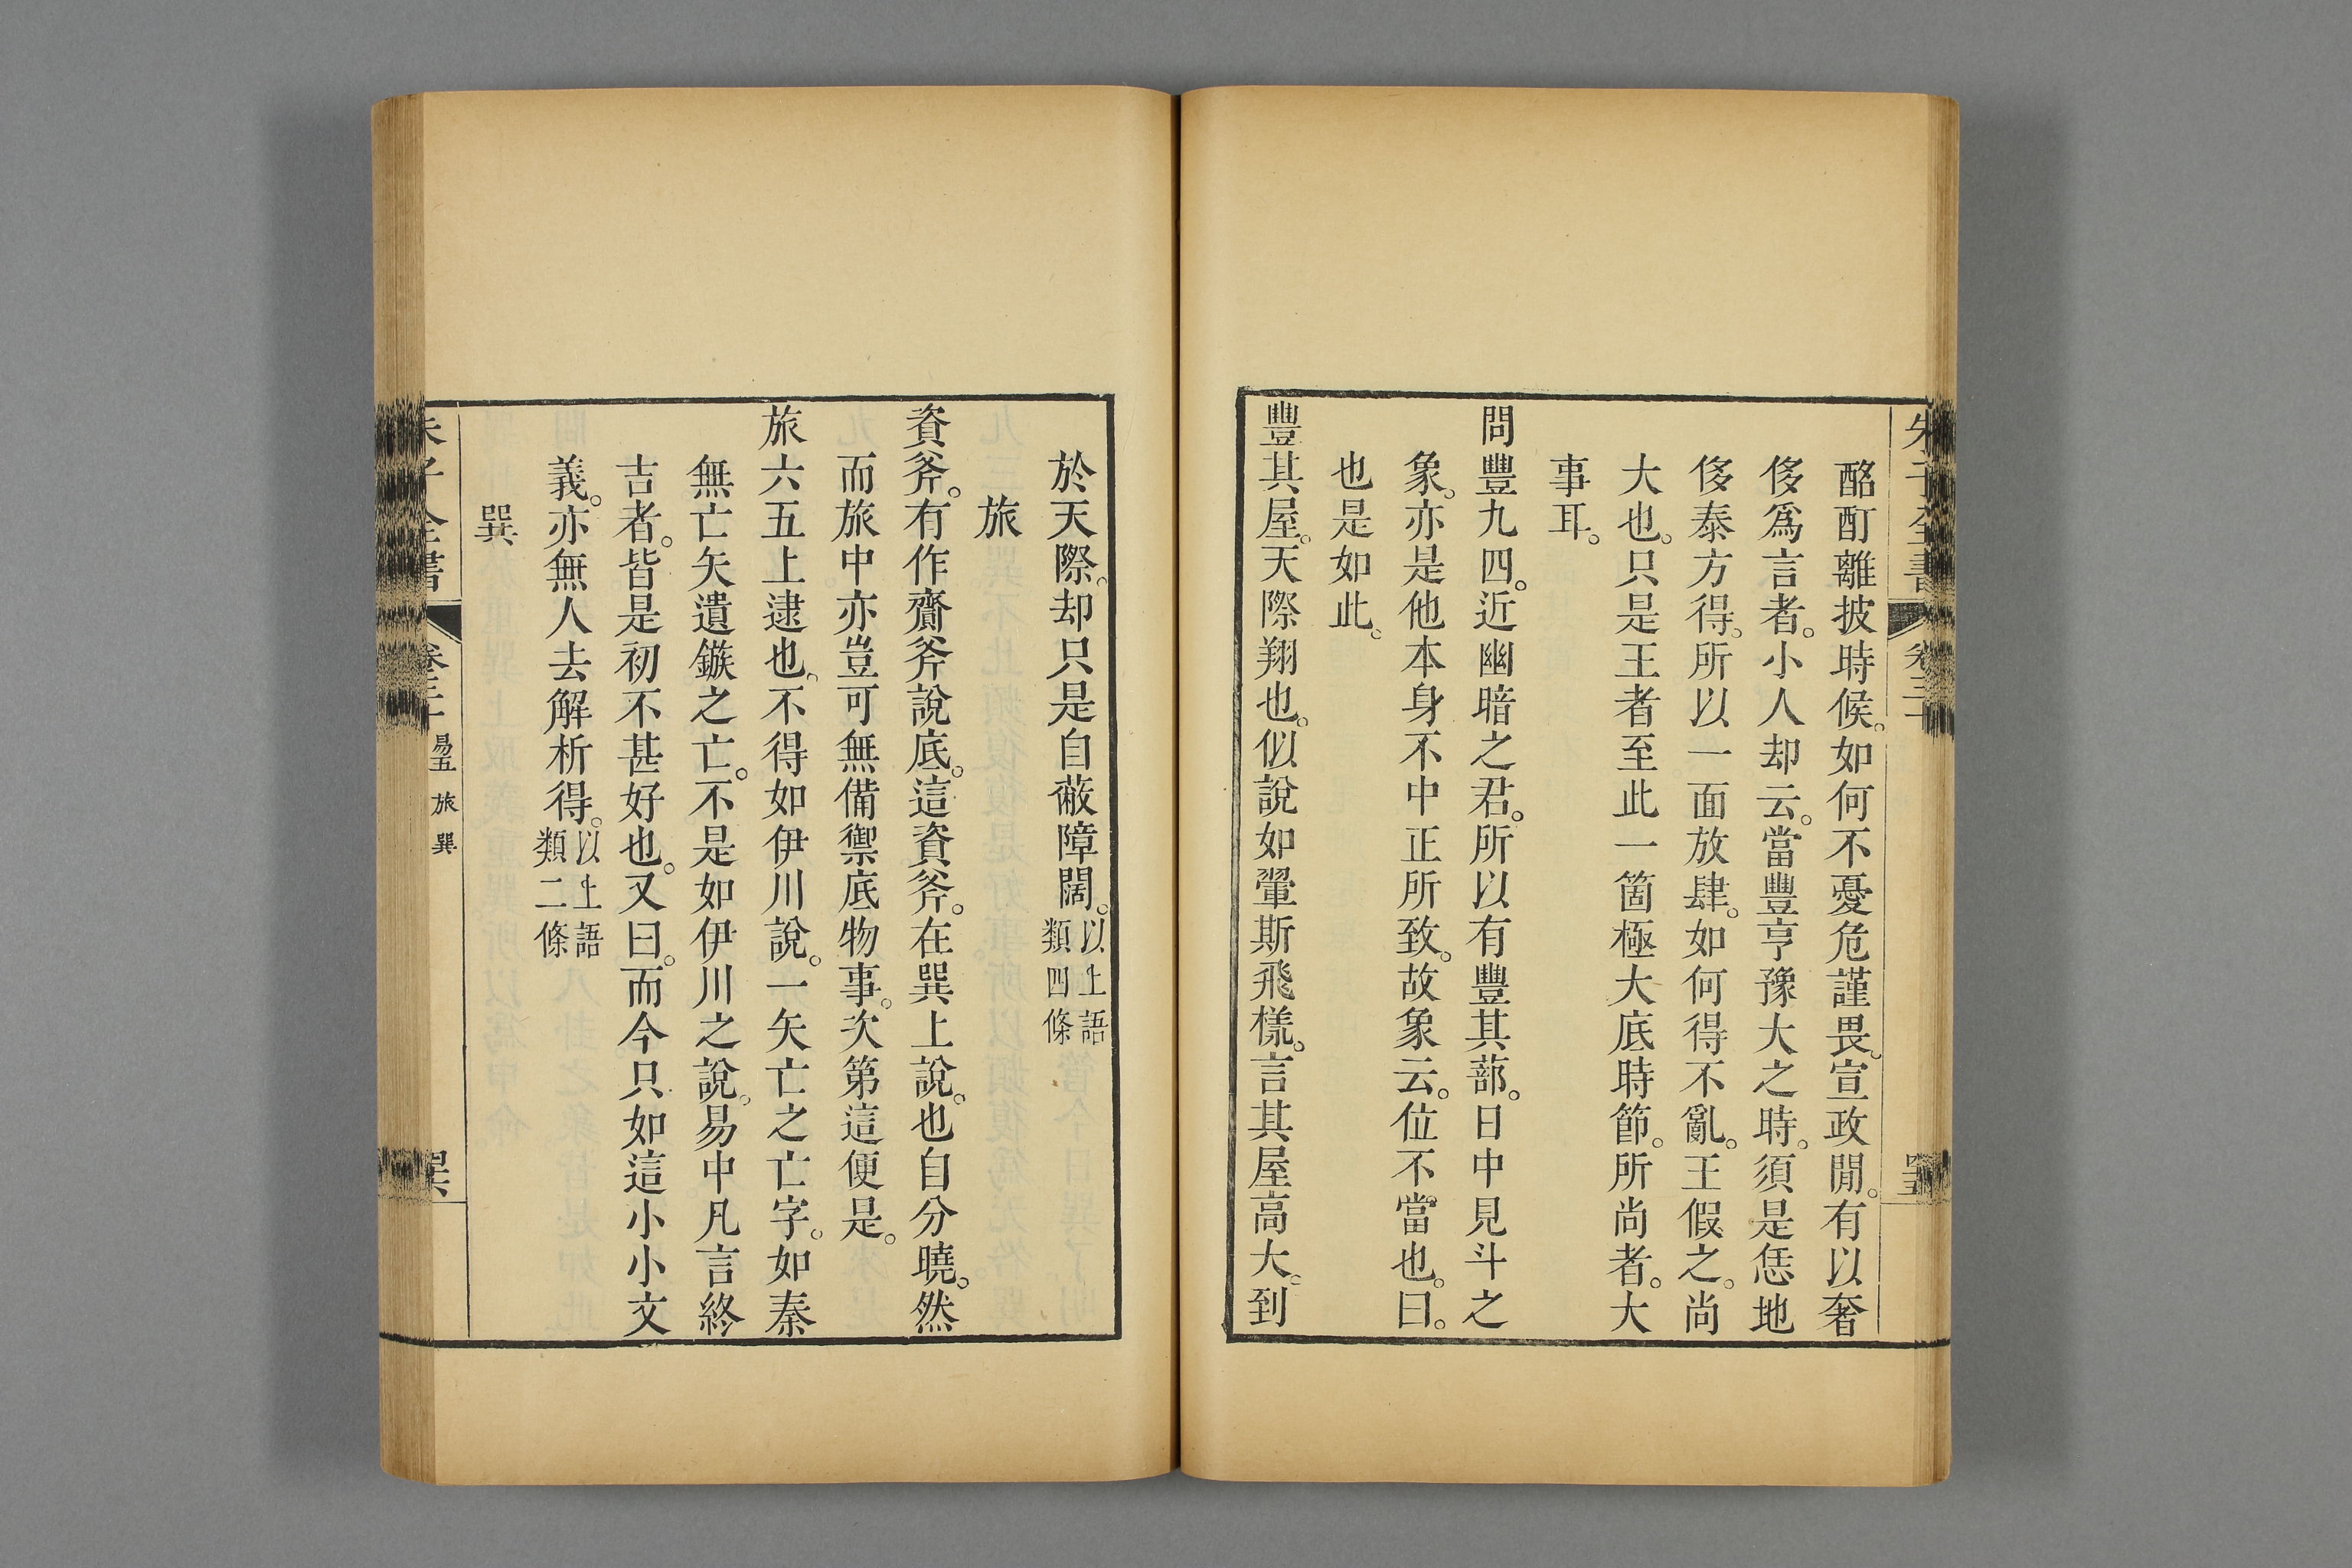 酩酊離披時候。如何不憂危謹畏。宣政閒。有以奢
侈爲言者。小人却云。當豐亨豫大之時。須是恁地
侈泰方得。所以一面放肆。如何得不亂。王假之。尚
大也。只是王者至此一箇極大底時節。所尚者。大
事耳。
問豐九四。近幽暗之君。所以有豐其蔀。日中見斗之
象。亦是他本身不中正所致。故象云。位不當也。曰。
也是如此。
豐其屋。天際翔也。似說如翬斯飛樣。言其屋高大。到
於天際。却只是自蔽障闊。以上語
類四條
旅
資斧。有作齎斧說底。這資斧。在巽上說。也自分曉。然
而旅中亦豈可無備禦底物事。次第這便是。
旅六五上逮也。不得如伊川說。一矢亡之亡字。如秦
無亡矢遺鏃之亡。不是如伊川之說。易中凡言終
吉者。皆是初不甚好也。又曰。而今只如這小小文
義。亦無人去解析得。以上語
類二條
巽
朱子全書
易五
旅
巽